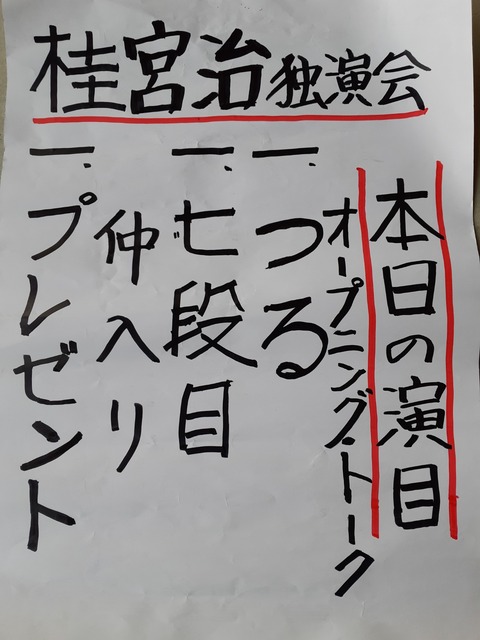 桂宮治独演会
本日の演目
オープニング・トーク
一、つる
一、七段目
仲入り
一、プレゼント